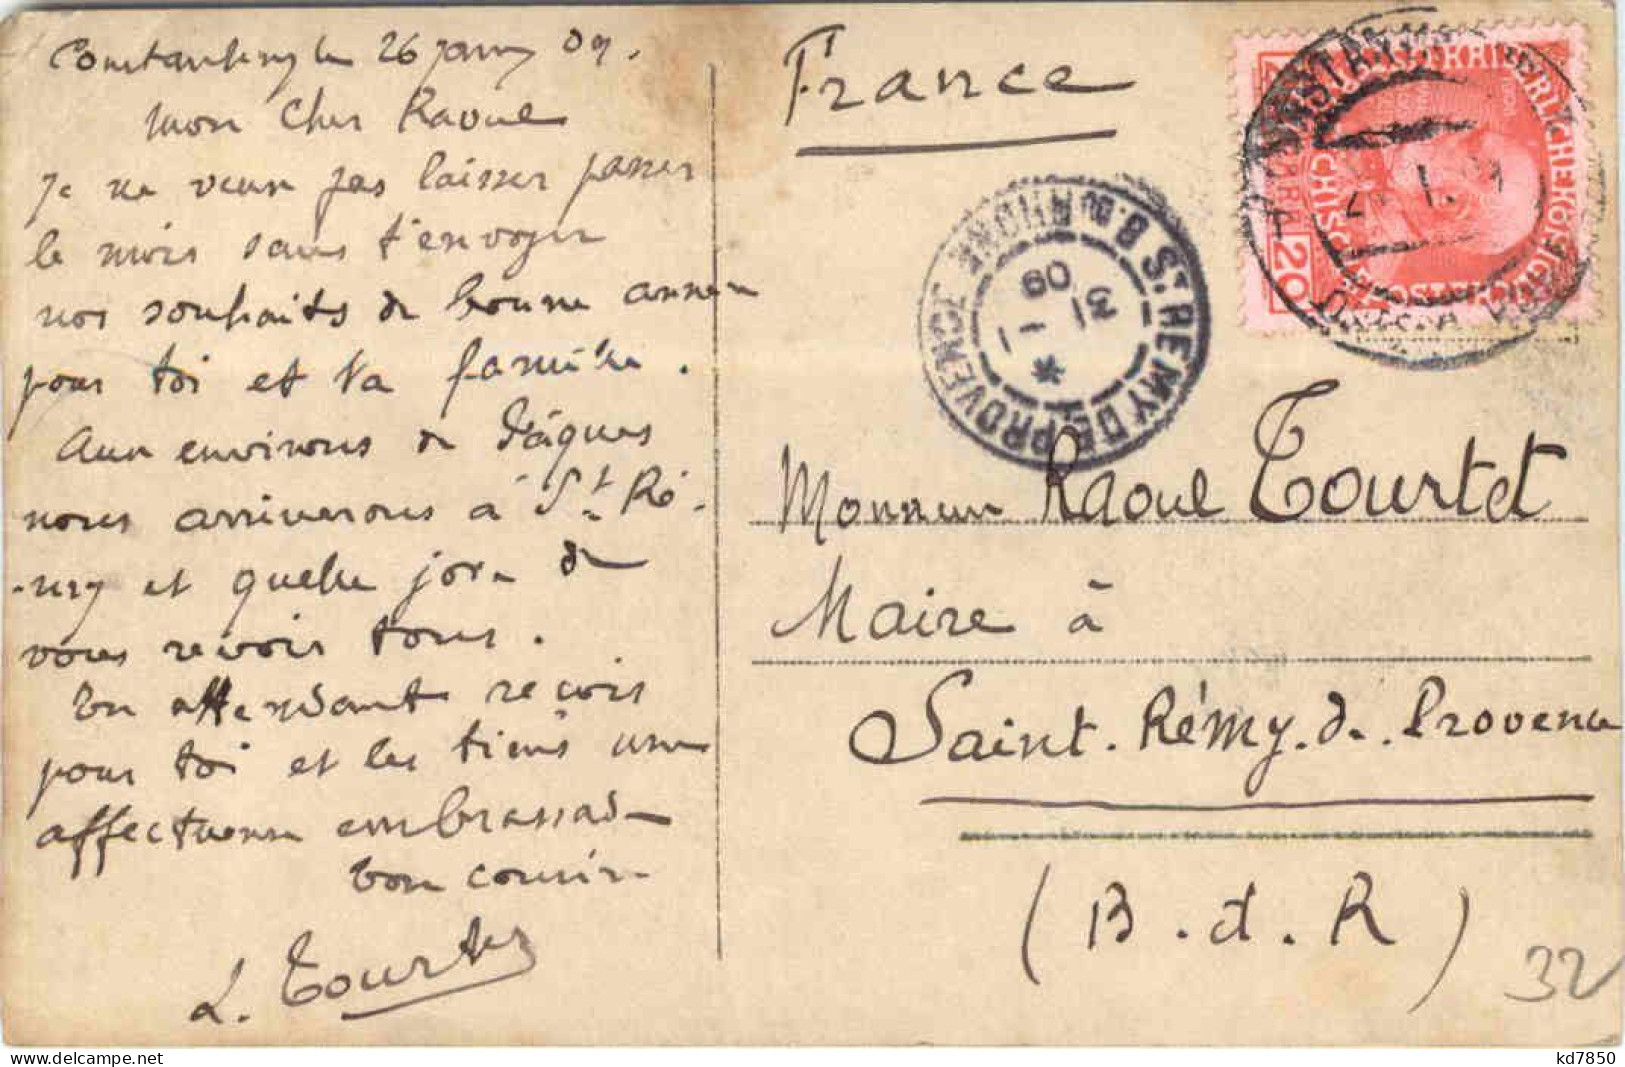 Constantinople 26 janv 09.
Mon Cher Raoul
Je ne veux pas laisser passer
le mois sans t'envoyer
nos souhaits de bonne année
pour toi et ta famille.
Aux environs de Pâques
nous arriverons à St Ré-
-my et quelle joie de
vous revoir tous.
En attendant reçois
pour toi et les tiens une
affectueuse embrassade
Ton cousin
L. Tourtet
France
ST REMY DE PROVENCE
B. DU RHONE
31 - 1
09
KAISERLICHE KÖNIGLICHE
ÖSTERREICHISCHE
20
Monsieur Raoul Tourtet
Maire à
Saint. Rémy. de. Provence
(B. d. R)
32
kd7850